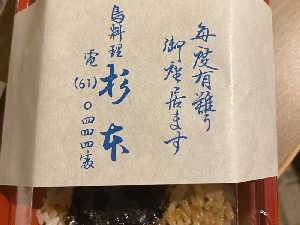 毎度有難う
御座居ます
鳥料理
杉本
電(61)〇四四四番